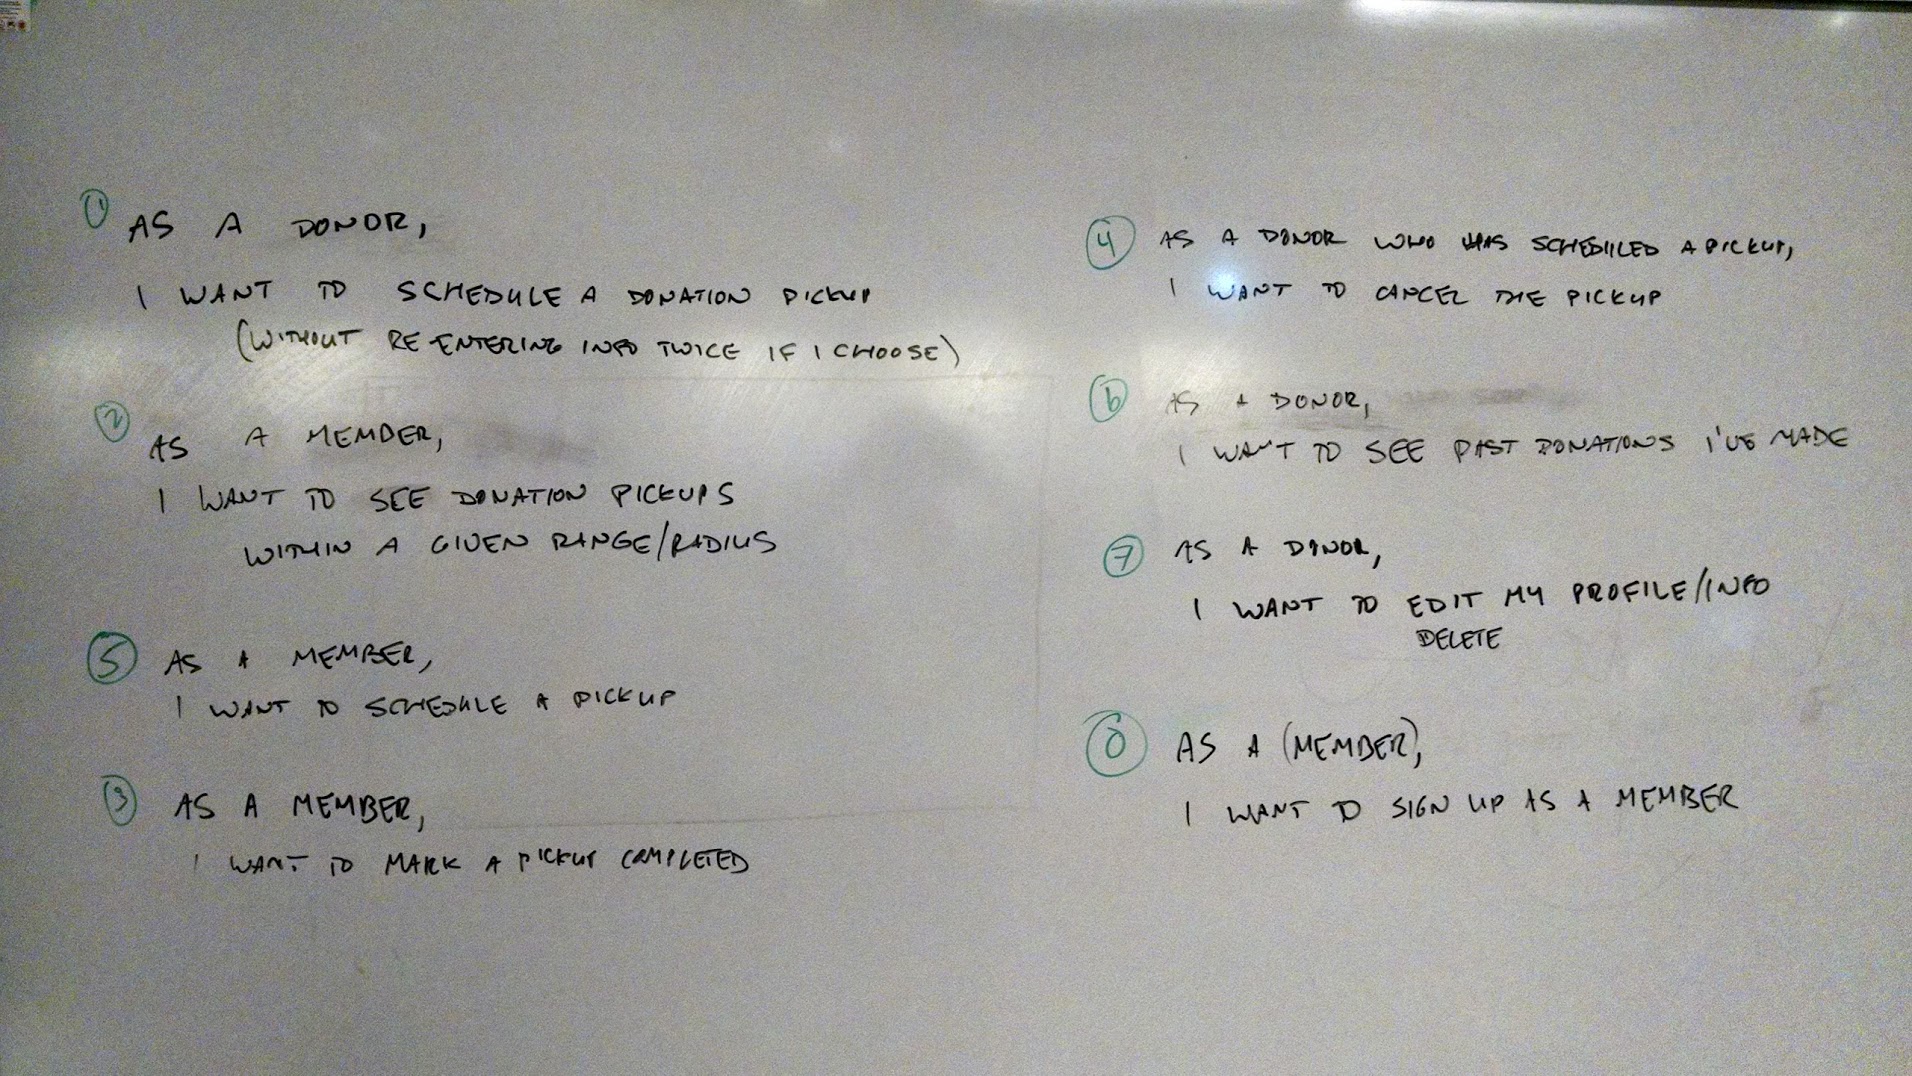 ① AS A DONOR,
I WANT TO SCHEDULE A DONATION PICKUP
(WITHOUT RE-ENTERING INFO TWICE IF I CHOOSE)
② AS A MEMBER,
I WANT TO SEE DONATION PICKUPS
WITHIN A GIVEN RANGE/RADIUS
⑤ AS A MEMBER,
I WANT TO SCHEDULE A PICKUP
③ AS A MEMBER,
I WANT TO MARK A PICKUP COMPLETED
④ AS A DONOR WHO HAS SCHEDULED A PICKUP,
I WANT TO CANCEL THE PICKUP
⑥ AS A DONOR,
I WANT TO SEE PAST DONATIONS I'VE MADE
⑦ AS A DONOR,
I WANT TO EDIT MY PROFILE/INFO
DELETE
⓪ AS A (MEMBER),
I WANT TO SIGN UP AS A MEMBER